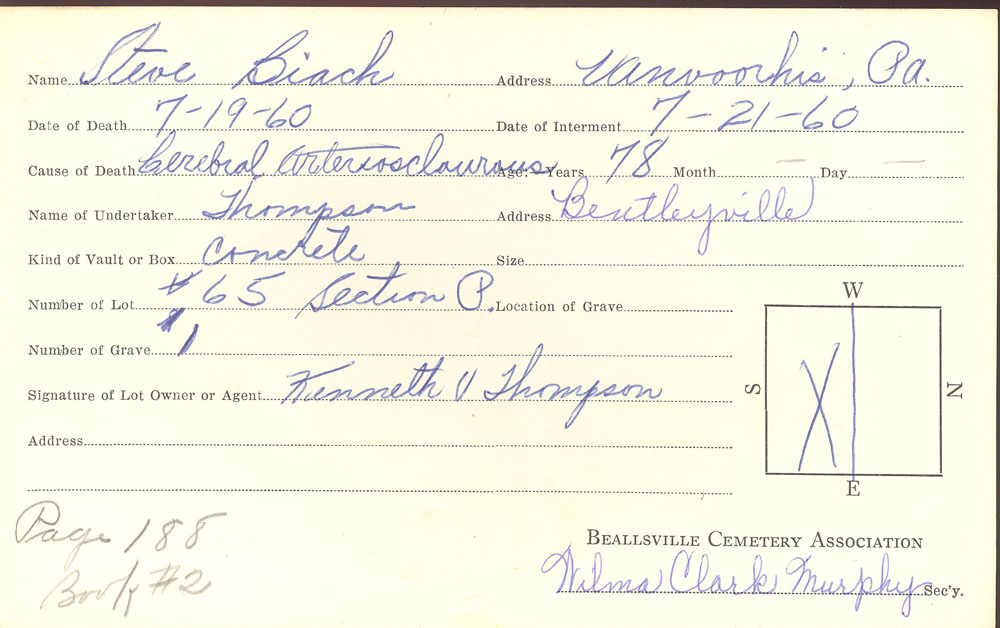 Name Steve Biach Address Vanvoorhis, Pa.
Date of Death 7-19-60 Date of Interment 7-21-60
Cause of Death Cerebral Arteriosclaurous Age:—Years 78 Month — Day —
Name of Undertaker Thompson Address Bentleyville
Kind of Vault or Box Concrete Size
Number of Lot #65 Section P. Location of Grave
Number of Grave #1
Signature of Lot Owner or Agent Kenneth V Thompson
Address
W
S N
E
Page 188
Book #2
BEALLSVILLE CEMETERY ASSOCIATION
Wilma Clark Murphy Sec'y.